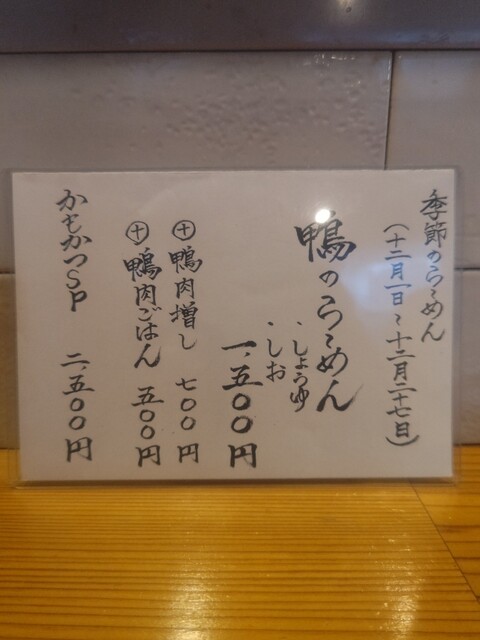 季節のらーめん
(十二月一日〜十二月二十七日)
鴨のらーめん
・しょうゆ
・しお
一、五〇〇円
⊕鴨肉増し 七〇〇円
⊕鴨肉ごはん 五〇〇円
かもかつSP 二、五〇〇円